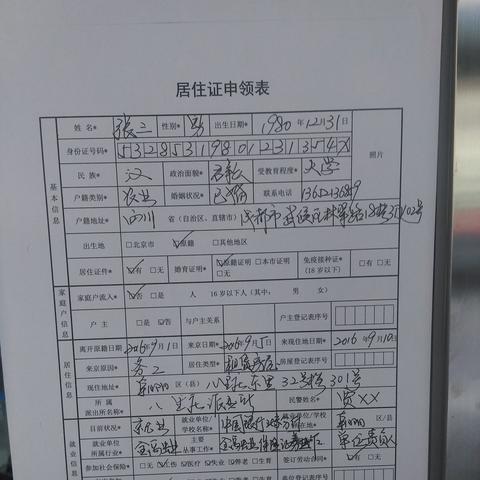 居住证申领表
姓 名* 张三 性别* 男 出生日期* 1980 年 12 月 31 日
身份证号码* 53285319801231354X 照片
民 族* 汉 政治面貌* 受教育程度* 大学
户籍类别* 农业 婚姻状况* 已婚 联系电话
户籍地址* 四川 省(自治区、直辖市) 成都市武侯区
出生地 □北京市 ☑原籍 □其他地区
居住证件* ☑有 □无 婚育证明 ☑原籍证明 □本市证明 □无 免疫接种证* (18岁以下) □有 □无
基本信息
家庭户流入* □是 人 16岁以下人(其中: 男 女)
户 主 □是 ☑否 与户主关系 户主登记表序号
家庭户信息
离开原籍日期 2016年9月1日 来京日期* 2016年9月5日 来现住地日期* 2016年9月10日
来京原因* 务工 居住类型* 租赁房屋 房屋登记表序号
现住地址* 朝阳 区(县) 八里庄东里32号楼301号
所 属 派出所名称* 八里庄派出所 民警姓名* 贾XX
居住信息
目前状况* 就业单位/学校名称* 就业单位/学校所在地* 朝阳 区/县
就业单位所属行业* 金融业 主要从事工作*
参加社会保险* □无 ☑工伤 ☑医疗 ☑失业 ☑养老 □生育 签订劳动合同* ☑有 □无
就业信息